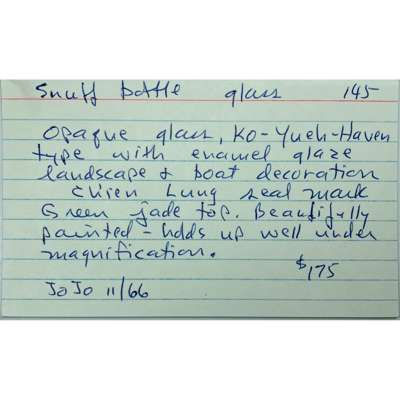 Snuff bottle glass 145
Opaque glass, Ko-Yueh-Haven
type with enamel glaze
landscape & boat decoration
Chien Lung seal mark
Green jade top. Beautifully
painted - holds up well under
magnification.
$175
JoJo 11/66